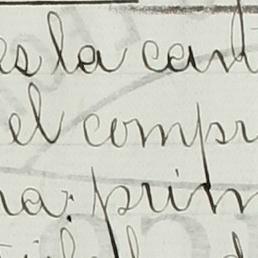 es la cant
el compr
na: prim